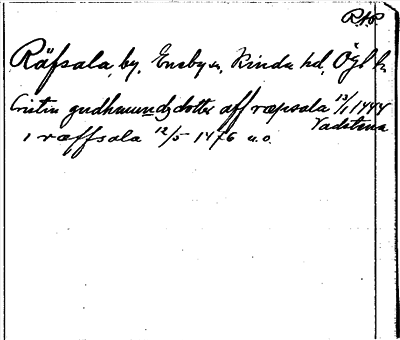 RAP
Räfsala, by, Enebys, Kinda hd, Ögl.
Cristin gudhmundzdotter aff ræpsala 13/1 1444
Vadstena
i ræffsala 12/5 1476 u.o.